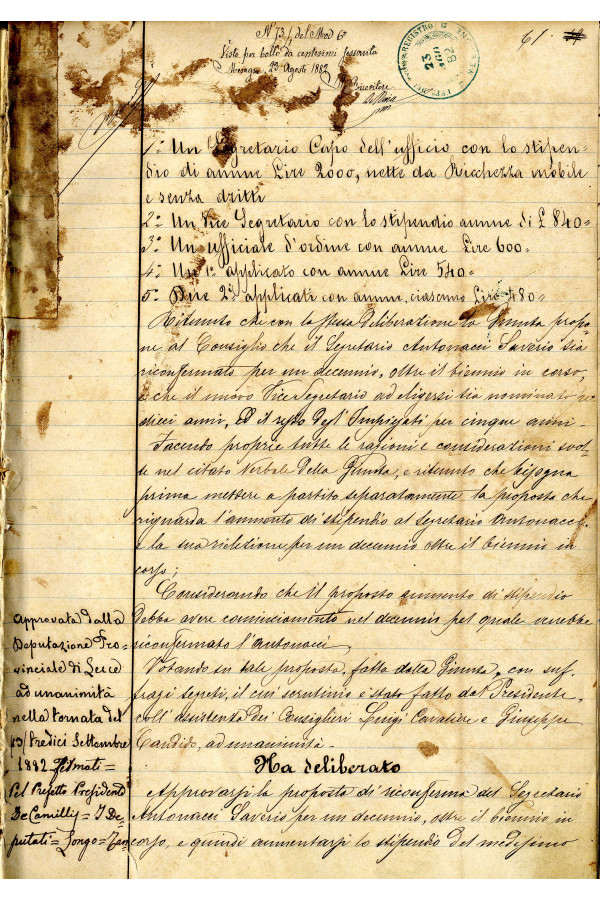 N. 73 del Mod 6º
Visto per bollo da centesimi sessanta
23 Agosto 1882
Il Ricevitore
REGISTRO
23
AGO
82
61
1º Un Segretario Capo dell'ufficio con lo stipen-
dio di annue Lire 2000, nette da Ricchezza mobile
e senza dritti
2º Un Vice Segretario con lo stipendio annuo di £ 840=
3º Un ufficiale d'ordine con annue Lire 600=
4º Un 1º applicato con annue Lire 540=
5º Due 2i applicati con annue, ciascuno Lire 480=
Ritenuto che con la stessa deliberazione la Giunta propo-
ne al Consiglio che il Segretario Antonacci Saverio sia
riconfermato per un decennio, oltre il biennio in corso,
e che il nuovo Vice Segretario ad eligersi sia nominato
dieci anni, ed il resto degl'Impiegati per cinque anni-
Facendo proprie tutte le ragioni e considerazioni svol-
te nel citato Verbale della Giunta, e ritenuto che bisogna
prima mettere a partito separatamente la proposta che
riguarda l'aumento di stipendio al Segretario Antonacci
e la sua rielezione per un decennio oltre il biennio in
corso;
Considerando che il proposto aumento di stipendio
debba avere cominciamento nel decennio pel quale verrebbe
riconfermato l'Antonacci,
Votando su tale proposta, fatta dalla Giunta, con suf-
fragi segreti, il cui scrutinio è stato fatto dal Presidente,
coll'assistenza dei Consiglieri Luigi Cavaliere e Giuseppe
Candido, ad unanimità-
Ha deliberato
Approvarsi la proposta di riconferma del Segretario
Antonacci Saverio per un decennio, oltre il biennio in
corso, e quindi aumentarsi lo stipendio del medesimo
Approvata dalla
Deputazione Pro-
vinciale di Lecce
ad unanimità
nella tornata del
13/tredici Settembre
1882 Firmati=
Pel Prefetto Presidente
De Camillis= I De-
putati= Longo= Zan